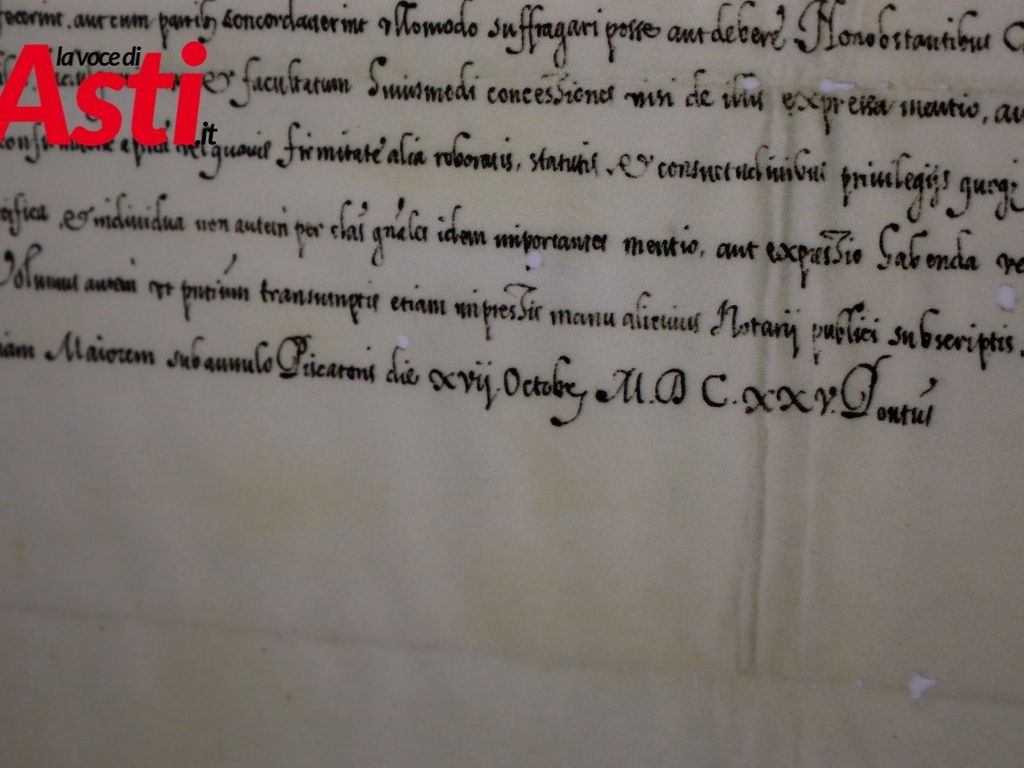 la voce di
Asti.it
aut cum parib; concordaverint nullomodo suffragari posse aut debere Nonobstantibus
facultatum huiusmedi concessiones nisi de illis expressa mentio,
quavis firmitate alia roboratis, statutis, & consuetudinibus privilegijs quoq;
& individua non autem per clās gn̄ales idem importantes mentio, aut expressio habenda
Volumus autem ut pn̄tium transumptis etiam impressis manu alicuius Notarij publici subscriptis
Maiorem sub annulo Piscatoris die xvij. Octobr M.D C.XXV. Pontūs